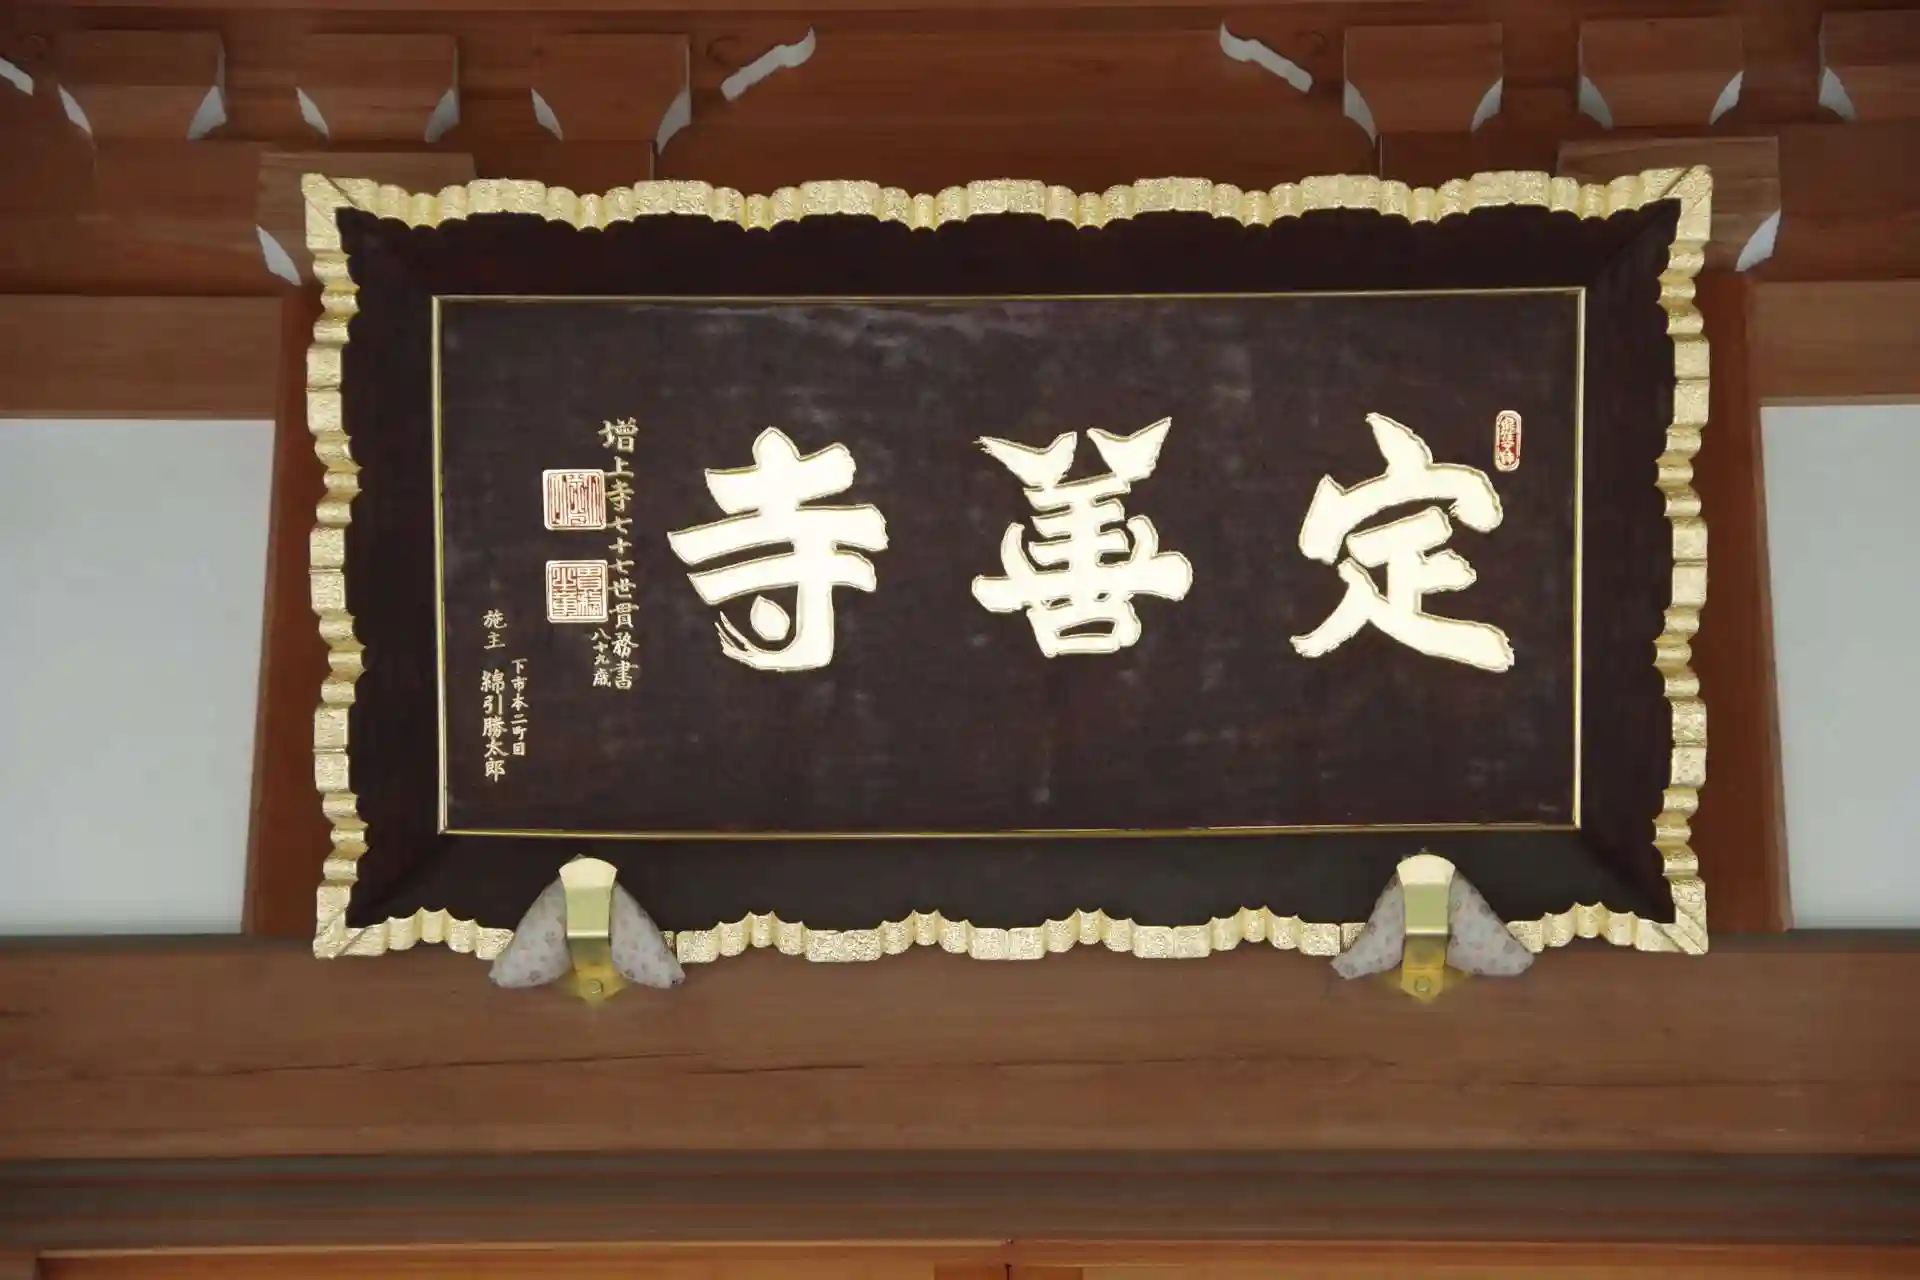 定善寺
増上寺七十七世貫務書
八十九歳
施主
下市本二町目
綿引勝太郎